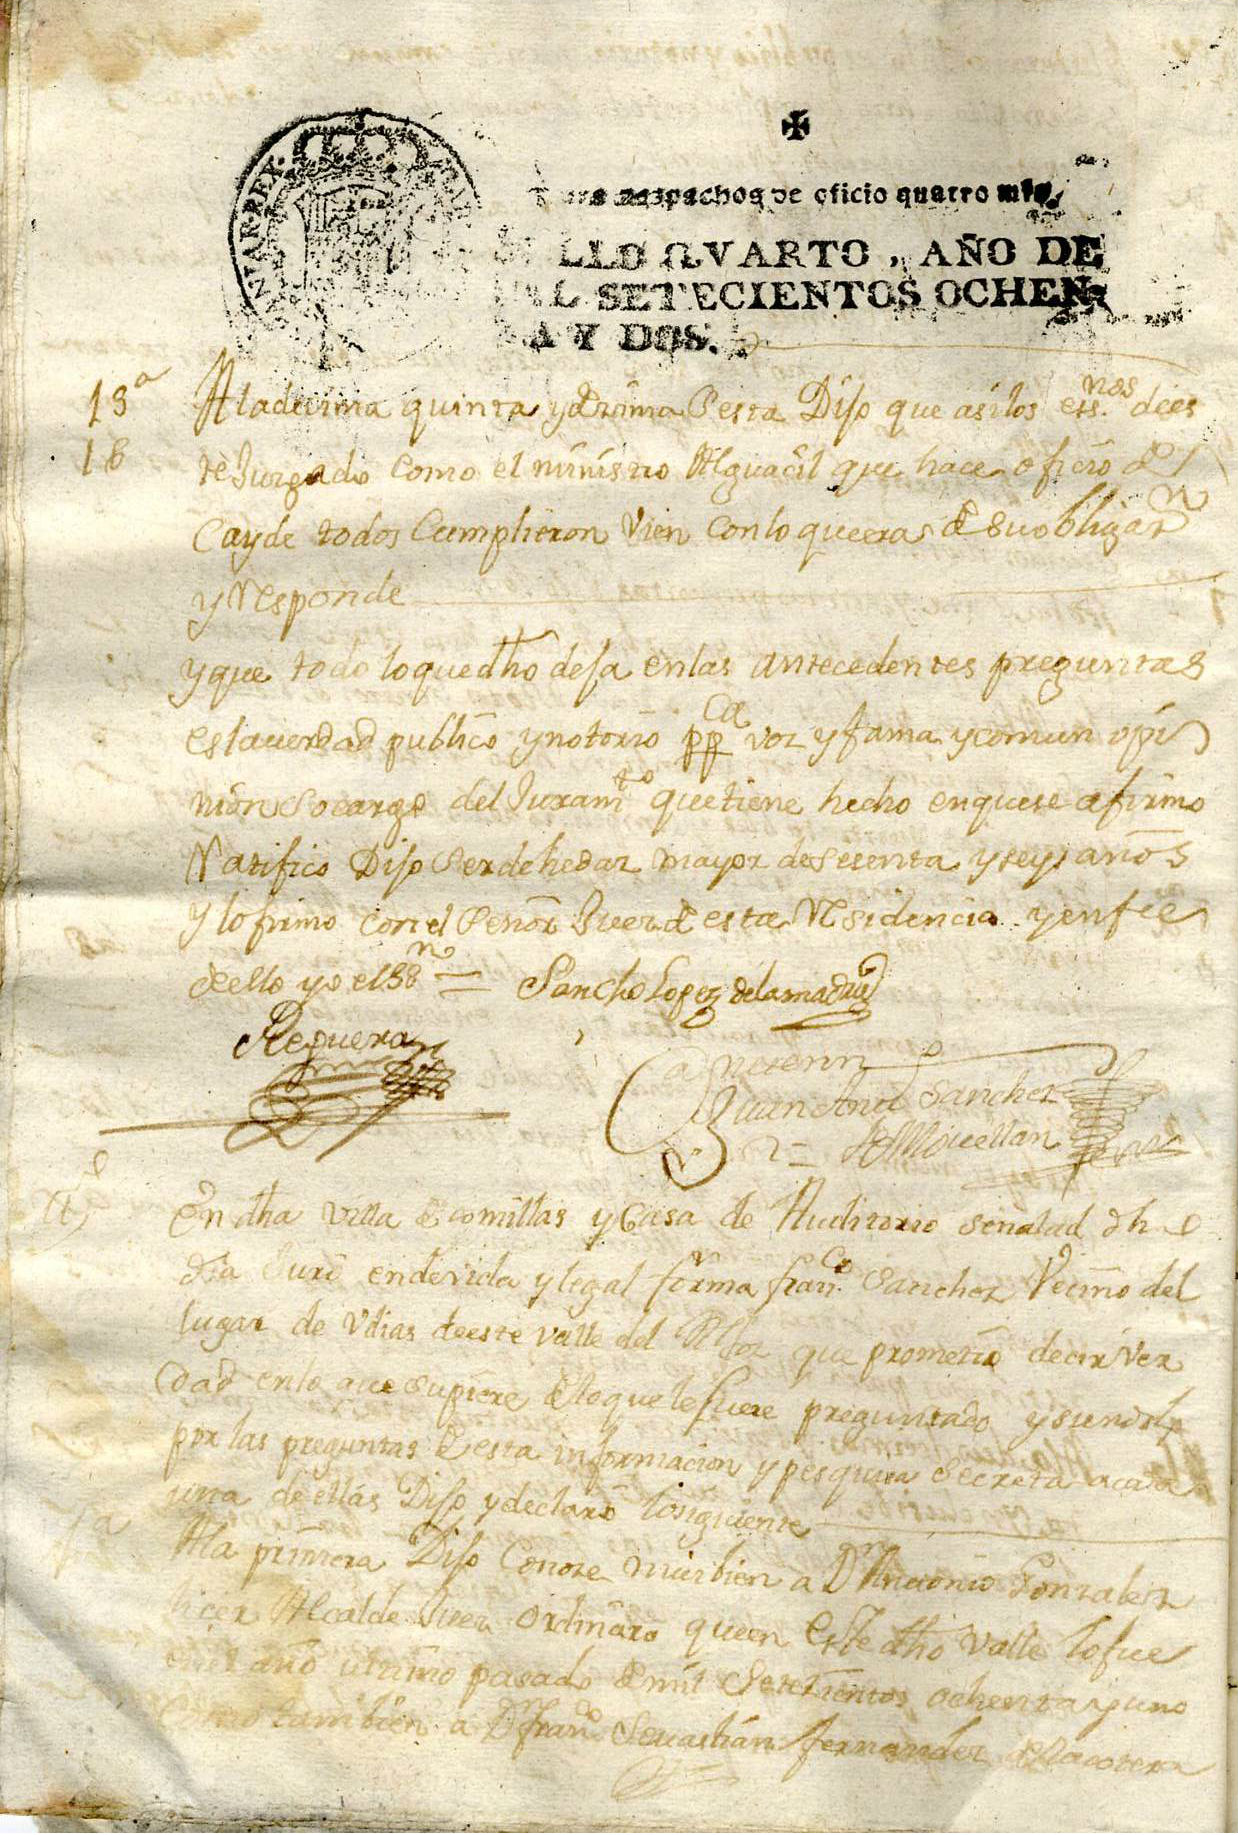 ✠
despachos de oficio quatro mrs.
SELLO QVARTO, AÑO DE
MIL SETECIENTOS OCHEN-
TA Y DOS.
15ª
16
A la decima quinta y dezima Sesta Dijo que asi los ess.nos de es
te Juzgado como el ministro Alguacil que hace oficio de Al
cayde todos Cumplieron vien con lo que era de su obligazn
y Responde
y que todo lo que dho deja en las antecedentes preguntas
es la verdad publico y notorio ppca voz y fama y comun opi
nion so cargo del Juramto que tiene hecho en que se afirmo
Ratifico Dijo ser de hedaz mayor de sesenta y seys años
y lo firmo con el Señor Juez de esta Residencia y en fee
de ello yo el Ssno = Sancho Lopez de la madriz
Reguera
Ante mi
Juan Antt Sanchez
de Movellan
tº
En dha villa de comillas y Casa de Auditorio señalad dho
dia Juro en devida y legal forma franco Sanchez Vecino del
lugar de Vdias de este valle del Alfoz que prometio decir ver
dad en lo que supiere de lo que le fuere preguntado y siendolo
por las preguntas de esta informacion y pesquisa secreta a cada
una de ellas Dijo y declaró lo siguiente
1ª
A la primera Dijo Conoze mui bien a Dn Antonio Gonzalez
Alcalde Juez ordinaro que en este dho valle lo fue
en el año utimo pasado de mil Setezientos ochenta y uno
Como tambien a Dn franco Sevastian fernandez de la cotera